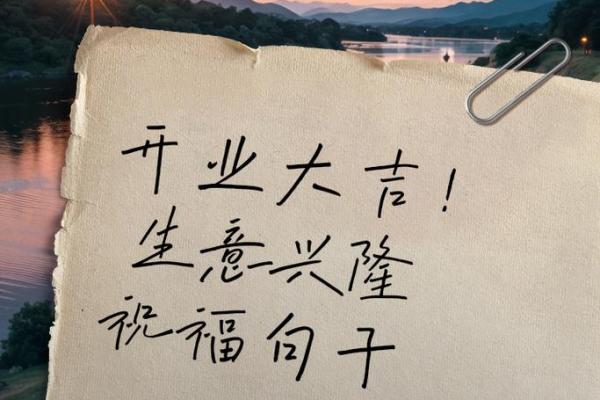 开业大吉!
生意兴隆
祝福句子